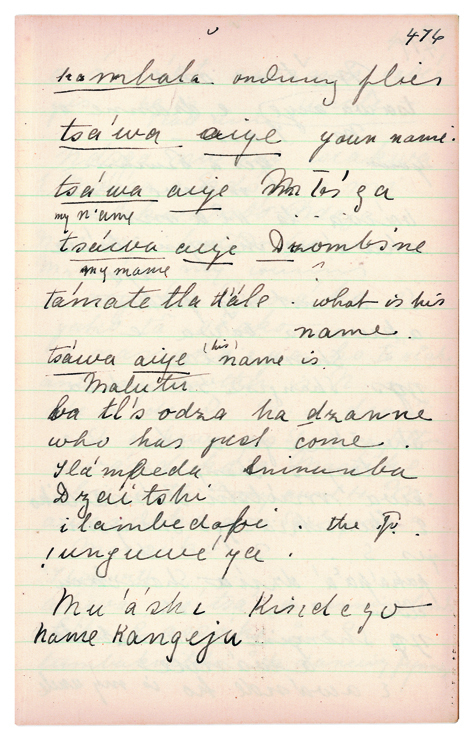 476
kambala ordinary flies
tsá'wa aiye your name.
tsá'wa aiye
my n'ame
tsáwa aiye Dzombo'ne
my name
támate tla dále . what is his
name.
tsáwa aiye (his) name is.
Malutu
ba tl's odza ha dzanne
who has just come.
ilámbeda
Dzáitshi
ilambedapi . the
! unguwé'ya .
Mu'áshi Kindego
name Kangeju